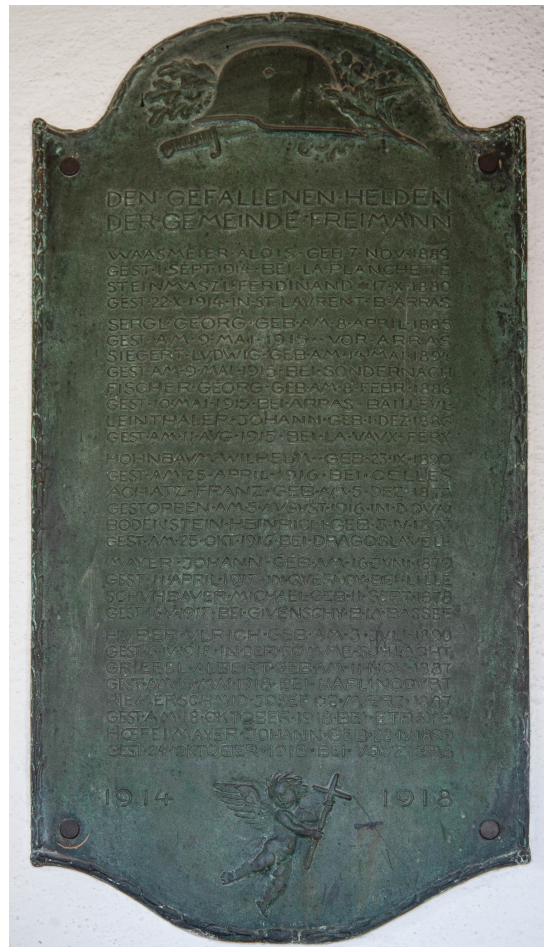 DEN·GEFALLENEN·HELDEN
DER·GEMEINDE·FREIMANN
WAASMEIER·ALOIS·GEB·7·NOV·1889
GEST·1·SEPT·1914·BEI·LA·PLANCHETTE
STEINMASZL·FERDINAND·*17·X·1880
GEST·22·X·1914·IN·ST·LAVRENT·B·ARRAS
SERGL·GEORG·GEB·AM·8·APRIL·1885
GEST·AM·9·MAI·1915·VOR·ARRAS
SIEGERT·LVDWIG·GEB·AM·14·MAI·1894
GEST·AM·9·MAI·1915·BEI·SONDERNACH
FISCHER·GEORG·GEB·AM·8·FEBR·1886
GEST·10·MAI·1915·BEI·ARRAS·BAILLEVL
LEINTHALER·JOHANN·GEB·1·DEZ·1885
GEST·AM·11·AVG·1915·BEI·LA·VAVX·FERY
HOHNBAVM·WILHELM·GEB·23·IX·1890
GEST·AM·25·APRIL·1916·BEI·CELLES
ACHATZ·FRANZ·GEB·AM·5·DEZ
GESTORBEN·AM·5·AVGVST·1916·IN·DOVAI
BODENSTEIN·HEINRICH·GEB
GEST·AM·25·OKT·1916·BEI·DRAGOSLAVELI
MAYER·JOHANN·GEB·AM·16·JVNI·1879
GEST·11·APRIL·1917·BEI·LILLE
SCHVHBAVER·MICHAEL·GEB·11·SEPT·1878
1917·BEI·GIVENSCHY·B·LA·BASSEE
HVBER·VLRICH·GEB·AM·3·JVLI·1890
GEST·1918·IN·DER·SOMME·SCHLACHT
GRIEBL·ALBERT·GEB·AM·11·NOV·1887
GEST·AM·MAI·1918·BEI·HAPLINCOVRT
RIEMERSCHMID·JOSEF·MÆRZ·1887
GEST·AM·18·OKTOBER·1918·BEI·ETRAYE
HŒFELMAYER·JOHANN·GEB
GEST·24·OKTOBER·1918·BEI
1914 1918